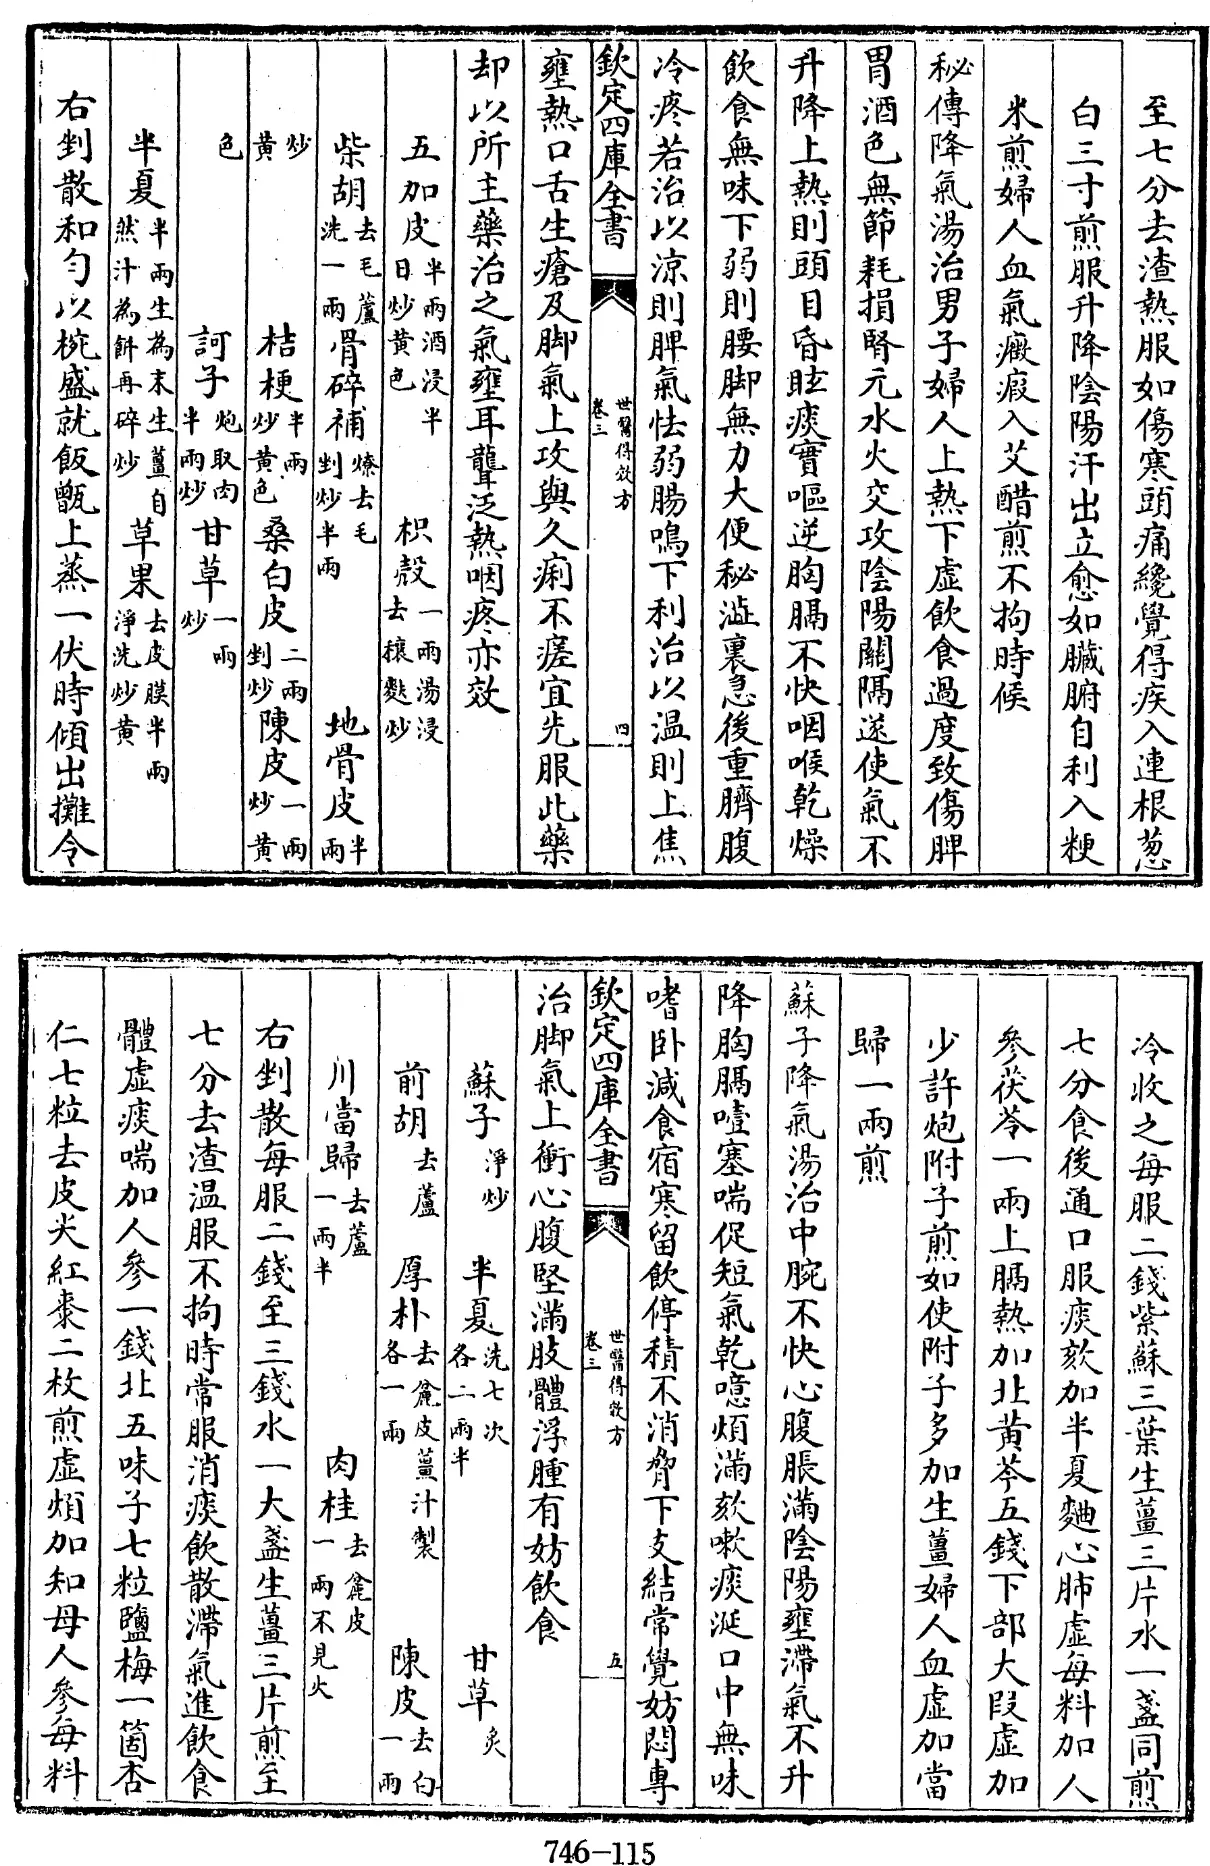 至七分去渣熱服如傷寒頭痛纔覺得疾入連根葱
白三寸煎服升降陰陽汗出立愈如臟腑自利入粳
米煎婦人血氣癥瘕入艾醋煎不拘時候
秘傳降氣湯治男子婦人上熱下虛飲食過度致傷脾
胃酒色無節耗損腎元水火交攻陰陽關隔遂使氣不
升降上熱則頭目昏眩痰實嘔逆胸膈不快咽喉乾燥
飲食無味下弱則腰脚無力大便秘澁裏急後重臍腹
冷疼若治以凉則脾氣怯弱腸鳴下利治以温則上焦
欽定四庫全書
世醫得效方
卷三
四
壅熱口舌生瘡及脚氣上攻與久痢不瘥宜先服此藥
却以所主藥治之氣壅耳聾泛熱咽疼亦效
五加皮半兩酒浸半日炒黄色 枳殼一兩湯浸去穰麩炒
柴胡去毛蘆洗一兩 骨碎補燎去毛剉炒半兩 地骨皮半兩
炒黄 桔梗半兩炒黄色 桑白皮二兩剉炒 陳皮一兩炒黄
色 訶子炮取肉半兩炒 甘草一兩炒
半夏半兩生為末生薑自然汁為餅再碎炒 草果去皮膜半兩淨洗炒黄
右剉散和匀以椀盛就飯甑上蒸一伏時傾出攤令
冷收之每服二錢紫蘇三葉生薑三片水一盞同煎
七分食後通口服痰欬加半夏麯心肺虛每料加人
參茯苓一兩上膈熱加北黄芩五錢下部大段虛加
少許炮附子煎如使附子多加生薑婦人血虛加當
歸一兩煎
蘇子降氣湯治中腕不快心腹脹滿陰陽壅滯氣不升
降胸膈噎塞喘促短氣乾噫煩滿欬嗽痰涎口中無味
嗜卧減食宿寒留飲停積不消脅下支結常覺妨悶專
欽定四庫全書
世醫得效方
卷三
五
治脚氣上衝心腹堅滿肢體浮腫有妨飲食
蘇子淨炒 半夏洗七次各二兩半 甘草炙
前胡去蘆 厚朴去麄皮薑汁製各一兩 陳皮去白一兩
川當歸去蘆一兩半 肉桂去麄皮一兩不見火
右剉散每服二錢至三錢水一大盞生薑三片煎至
七分去渣温服不拘時常服消痰飲散滯氣進飲食
體虛痰喘加人參一錢北五味子七粒鹽梅一箇杏
仁七粒去皮尖紅棗二枚煎虛煩加知母人參每料
746-115